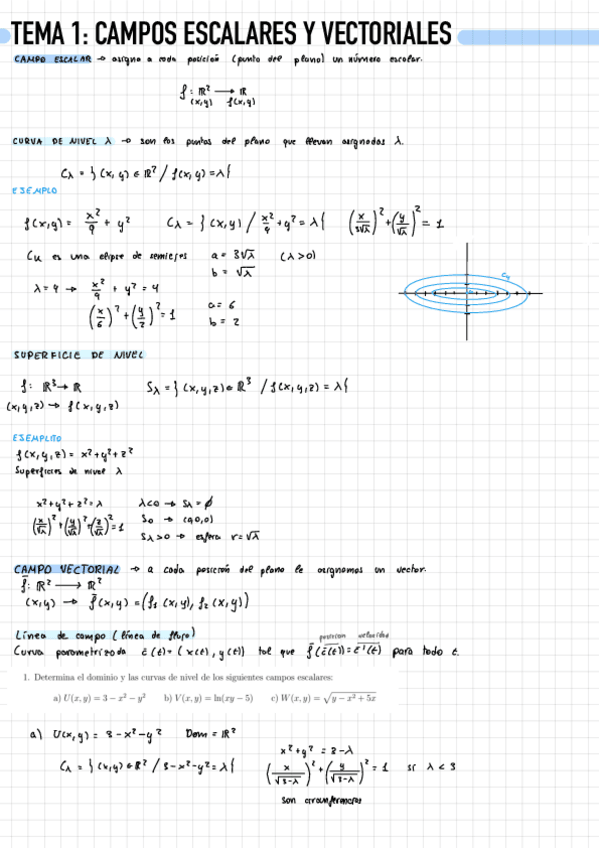 TEMA 1: CAMPOS ESCALARES Y VECTORIALES
CAMPO ESCALAR → asigno a cada posición (punto del plano) un número escalar.
f: ℝ² → ℝ
(x,y) f(x,y)
CURVA DE NIVEL λ → son los puntos del plano que llevan asignados λ.
Cλ = } (x, y) ∈ ℝ² / f(x,y) = λ {
EJEMPLO
f(x,y) = x²/9 + y² Cλ = } (x,y) / x²/9 + y² = λ { (x/3√λ)² + (y/√λ)² = 1
Cλ es una elipse de semiejes a = 3√λ (λ>0)
b = √λ
C4
λ = 4 → x²/9 + y² = 4 a = 6
(x/6)² + (y/2)² = 1 b = 2
SUPERFICIE DE NIVEL
f: ℝ³ → ℝ Sλ = } (x,y,z) ∈ ℝ³ / f(x,y,z) = λ {
(x,y,z) → f(x,y,z)
EJEMPLITO
f(x,y,z) = x²+y²+z²
Superficies de nivel λ
x²+y²+z²=λ λ<0 → Sλ = ∅
(x/√λ)²+(y/√λ)²+(z/√λ)²=1 S0 → (0,0,0)
Sλ>0 → esfera r=√λ
CAMPO VECTORIAL → a cada posición del plano le asignamos un vector.
f̄: ℝ² → ℝ²
(x,y) → f̄(x,y) = (f1 (x,y), f2 (x,y))
Línea de campo (línea de flujo)
posicion velocidad
Curva parametrizada c̄(t)=(x(t), y(t)) tal que f̄(c̄(t))=c̄'(t) para todo t.
1. Determina el dominio y las curvas de nivel de los siguientes campos escalares:
a) U(x, y) = 3 − x² − y² b) V(x, y) = ln(xy − 5) c) W(x, y) = √(y − x² + 5x)
a) U(x,y) = 3-x²-y² Dom = ℝ²
x²+y² = 3-λ
Cλ = } (x,y) ∈ ℝ² / 3-x²-y² = λ { (x/√3-λ)² + (y/√3-λ)² = 1 si λ < 3
son circunferencias